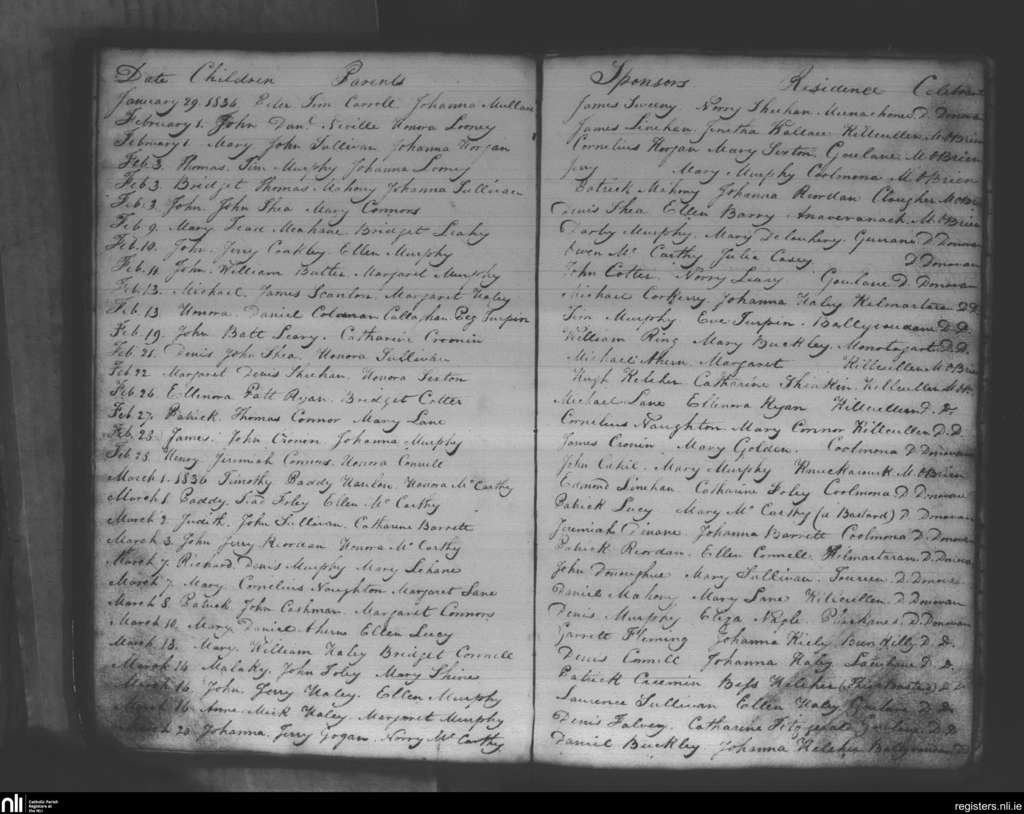 Date Children Parents
January 29. 1836 Peter Tim Carroll Johanna Mullane
February 1. John Danl. Neville Honora Looney
February 1 Mary John Sullivan Johanna Horgan
Feb. 3. Thomas. Tim Murphy Johanna Looney
Feb 3. Bridget Thomas Mahony Johanna Sullivan
Feb. 3. John. John Shea Mary Connors
Feb. 9. Mary Meahane Bridget Leahy
Feb. 10. John. Jerry Coakley. Ellen Murphy
Feb. 11. John. William Butler. Margaret Murphy
Feb. 13. Michael. James Scanlon. Margaret Haley
Feb. 13. Honora. Daniel Callaghan. Peg Turpin
Feb. 19. John Batt Leary. Catharine Croonin
Feb. 21. Denis John Shea. Honora Sullivan
Feb 22 Margaret Denis Sheehan. Honora Sexton
Feb. 26. Ellenora Patt Ryan. Bridget Cotter
Feb 27. Patrick. Thomas Connor Mary Lane
Feb. 28. James. John Cronin Johanna Murphy
Feb 28. Henry Jeremiah Connors. Honora Connell
March 1. 1836 Timothy Paddy Hanlon. Honora McCarthy
March 1 Paddy. Foley Ellen McCarthy
March 2. Judith. John Sullivan. Catharine Barrett
March 3. John Jerry Reordan Honora McCarthy
March 7. Richard. Denis Murphy Mary Lehane
March 7. Mary. Cornelius Naughton Margaret Lane
March 8. Patrick John Cashman. Margaret Connors
March 10. Mary Daniel Aherne Ellen Lucy
March 13. Mary. William Haley Bridget Connell
March 14 Malaky. John Foley Mary Shine
March 16. John. Jerry Haley. Ellen Murphy
March 16 Anne Mick Haley Margaret Murphy
March 20. Johanna. Jerry Gogan. Norry McCarthy
Sponsors Residence Celebrant
James Sweeny. Norry Sheehan D. Donovan
James Linehan. Wallace Kilcullen M. OBrien
Cornelius Horgan Mary Sexton. Goulane M. OBrien
Jery Mary Murphy Coolmona M. OBrien
Patrick Mahony Johanna Reordan Clougher M. OBrien
Denis Shea Ellen Barry M. OBrien
Darby Murphy. Mary Gurrane D. Donovan
Owen McCarthy Julia Casey D Donovan
John Cotter Norry Leary Goulane D. Donovan
Michael Corkerry. Johanna Haley Kilmartara D.D.
Tim Murphy Eve Turpin. D. D.
William Ring Mary Buckley. Monotagart D. D.
Michael Ahern. Margaret Killcullen M. OBrien
Hugh Keleher Catharine Killcullen M. OBr.
Michael Lane Ellenora Ryan Killcullen D. D.
Cornelius Naughton Mary Connor Kilcullen D. D.
James Cronin Mary Golden. Coolmona D Donovan
John Cahil. Mary Murphy M. OBrien
Edmond Linehan Catharine Foley Coolmona D Donovan
Patrick Lucy Mary McCarthy (a Bastard) D. Donovan
Jeremiah Dinane Johanna Barrett Coolmona D. Donovan
Patrick Reordan. Ellen Connell Kilmartaran. D. Donovan
John Donoughue Mary Sullivan. D. Donovan
Daniel Mahony Mary Lane Kilicullen. D Donovan
Denis Murphy Eliza Nagle D. Donovan
Garrett Fleming Johanna Kiely D. D.
Denis Connell Johanna Haley D. D.
Patrick Creemin Bess Keleher D. D
Laurence Sullivan Ellen Haley Goulane D. D.
Denis Falvey Catharine Fitzgerald Goulane D. D
Daniel Buckley Johanna Keleher D
nli Catholic Parish Registers at the NLI
registers.nli.ie